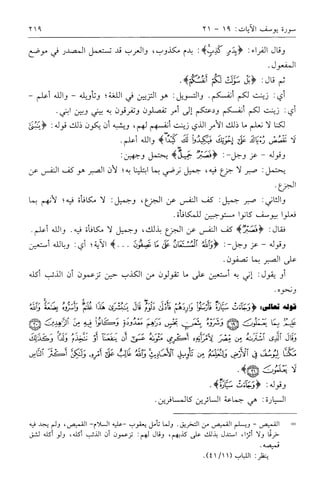 سورة يوسف الآيات: ١٩ - ٢١ ٢١٩
وقال الفراء: ﴿بِدَمٍ كَذِبٍ﴾: بدم مكذوب، والعرب قد تستعمل المصدر في موضع
المفعول.
ثم قال: ﴿بَلْ سَوَّلَتْ لَكُمْ أَنفُسُكُمْ﴾.
أي: زينت لكم أنفسكم. والتسويل: هو التزيين في اللغة؛ وتأويله - والله أعلم -
أي: زينت لكم أنفسكم ودعتكم إلى أمر تفصلون وتفرقون به بيني وبين ابني.
لكنا لا نعلم ما ذلك الأمر الذي زينت أنفسهم لهم، ويشبه أن يكون ذلك قوله: ﴿يَبُنَيَّ
لَا تَقْصُصْ رُءْيَاكَ عَلَىٰ إِخْوَتِكَ فَيَكِيدُوا لَكَ كَيْدًا﴾ والله أعلم.
وقوله - عز وجل -: ﴿فَصَبْرٌ جَمِيلٌ﴾ يحتمل وجهين:
يحتمل: صبر لا جزع فيه، جميل نرضي بما ابتلينا به؛ لأن الصبر هو كف النفس عن
الجزع.
والثاني: صبر جميل: كف النفس عن الجزع، وجميل: لا مكافأة فيه؛ لأنهم بما
فعلوا بيوسف كانوا مستوجبين للمكافأة.
فقال: ﴿فَصَبْرٌ﴾ كف النفس عن الجزع بذلك، وجميل لا مكافأة فيه. والله أعلم.
وقوله - عز وجل -: ﴿وَاللَّهُ الْمُسْتَعَانُ عَلَىٰ مَا تَصِفُونَ ...﴾ الآية؛ أي: وبالله أستعين
على الصبر بما تصفون.
أو يقول: إني به أستعين على ما تقولون من الكذب حين تزعمون أن الذئب أكله
ونحوه.
قوله تعالى: ﴿وَجَاءَتْ سَيَّارَةٌ فَأَرْسَلُوا وَارِدَهُمْ فَأَدْلَىٰ دَلْوَهُ قَالَ يَبُشْرَىٰ هَٰذَا غُلَامٌ وَأَسَرُّوهُ بِضَاعَةً وَاللَّهُ
عَلِيمٌ بِمَا يَعْمَلُونَ ﴿١٩﴾ وَشَرَوْهُ بِثَمَنٍ بَخْسٍ دَرَاهِمَ مَعْدُودَةٍ وَكَانُوا فِيهِ مِنَ الزَّاهِدِينَ ﴿٢٠﴾
وَقَالَ الَّذِي اشْتَرَاهُ مِن مِّصْرَ لِامْرَأَتِهِ أَكْرِمِي مَثْوَاهُ عَسَىٰ أَن يَنفَعَنَا أَوْ نَتَّخِذَهُ وَلَدًا وَكَذَٰلِكَ
مَكَّنَّا لِيُوسُفَ فِي الْأَرْضِ وَلِنُعَلِّمَهُ مِن تَأْوِيلِ الْأَحَادِيثِ وَاللَّهُ غَالِبٌ عَلَىٰ أَمْرِهِ وَلَٰكِنَّ أَكْثَرَ النَّاسِ
لَا يَعْلَمُونَ ﴿٢١﴾﴾.
وقوله: ﴿وَجَاءَتْ سَيَّارَةٌ﴾.
السيارة: هي جماعة السائرين كالمسافرين.
= القميص - ويسلم القميص من التخريق. ولما تأمل يعقوب - عليه السلام - القميص، ولم يجد فيه
خرقًا ولا أثرًا، استدل بذلك على كذبهم، وقال لهم: تزعمون أن الذئب أكله، ولو أكله لشق
قميصه.
ينظر: اللباب (٤١/١١).